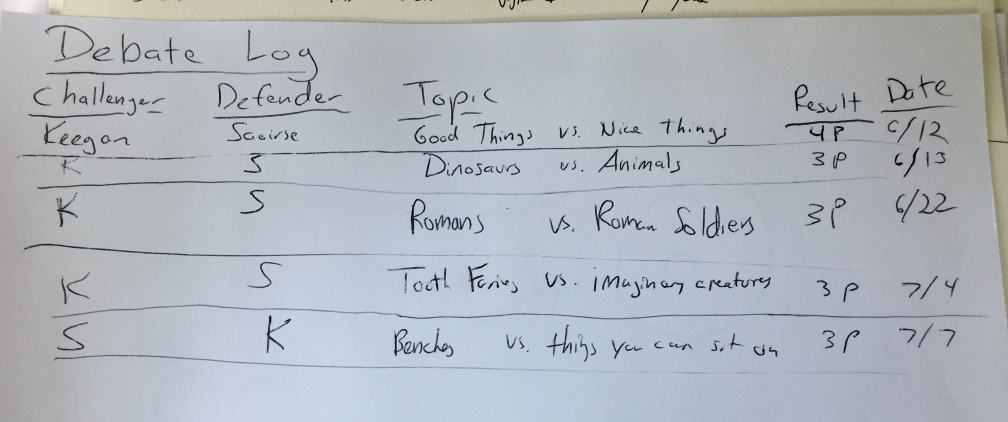 Debate Log
Challenger Defender Topic Result Date
Keegan Saoirse Good Things vs. Nice Things 4P 6/12
K S Dinosaurs vs. Animals 3P 6/13
K S Romans vs. Roman Soldiers 3P 6/22
K S Tooth Faries vs. imaginary creatures 3P 7/4
S K Benches vs. things you can sit on 3P 7/7